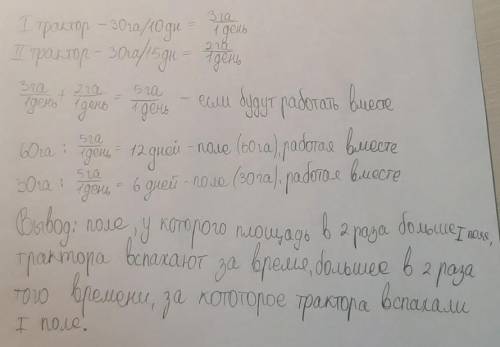 I трактор – 30га/10дн = 3га/1день
II трактор – 30га/15дн = 2га/1день
3га/1день + 2га/1день = 5га/1день – если будут работать вместе
60га : 5га/1день = 12 дней - поле (60га), работая вместе
30га : 5га/1день = 6 дней - поле (30га), работая вместе
Вывод: поле, у которого площадь в 2 раза больше I поля,
трактора вспахают за время, большее в 2 раза
того времени, за кототорое трактора вспахали
I поле.